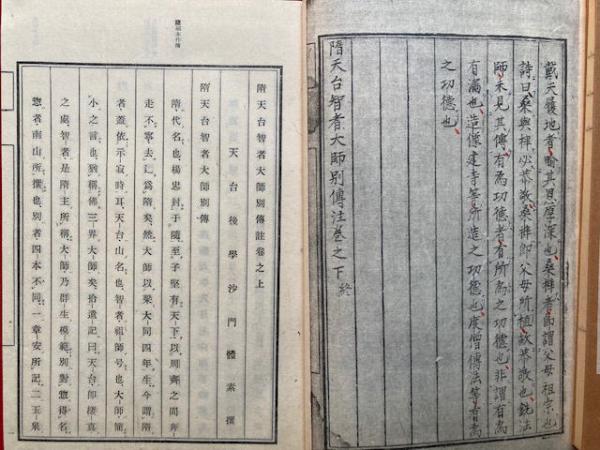 戴天履地者喻其恩厚深也桑梓者即謂父母祖宗也
詩曰桑與梓必恭敬桑梓即父母所植故恭敬也銑法
師未見其傳有為功德者有所為之功德也非謂有為
有漏也造像建寺等所造之功德也度僧傳法等者為
之功德也
隋天台智者大師別傳注卷之下終
隋天台智者大師別傳註卷之上
天台後學沙門體素撰
隋天台智者大師別傳
隋代名也楊忠封于隨至子堅有天下以周齊之間奔
走不寧去辶為隋矣然大師以梁大同四年生今謂隋
者蓋依示寂時耳天台山名也智者祖師号也大師簡
小之言也猶稱佛三界大師矣拾遺記曰天台即棲真
之處智者是隋主所稱大師乃群生模範別對惣得名
惣者南山所撰也別者四本不同一章安所記二玉泉